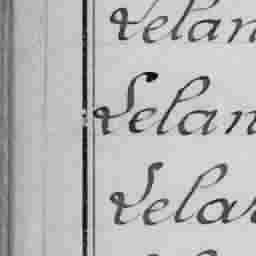 Lelan
Lelan
Lelan